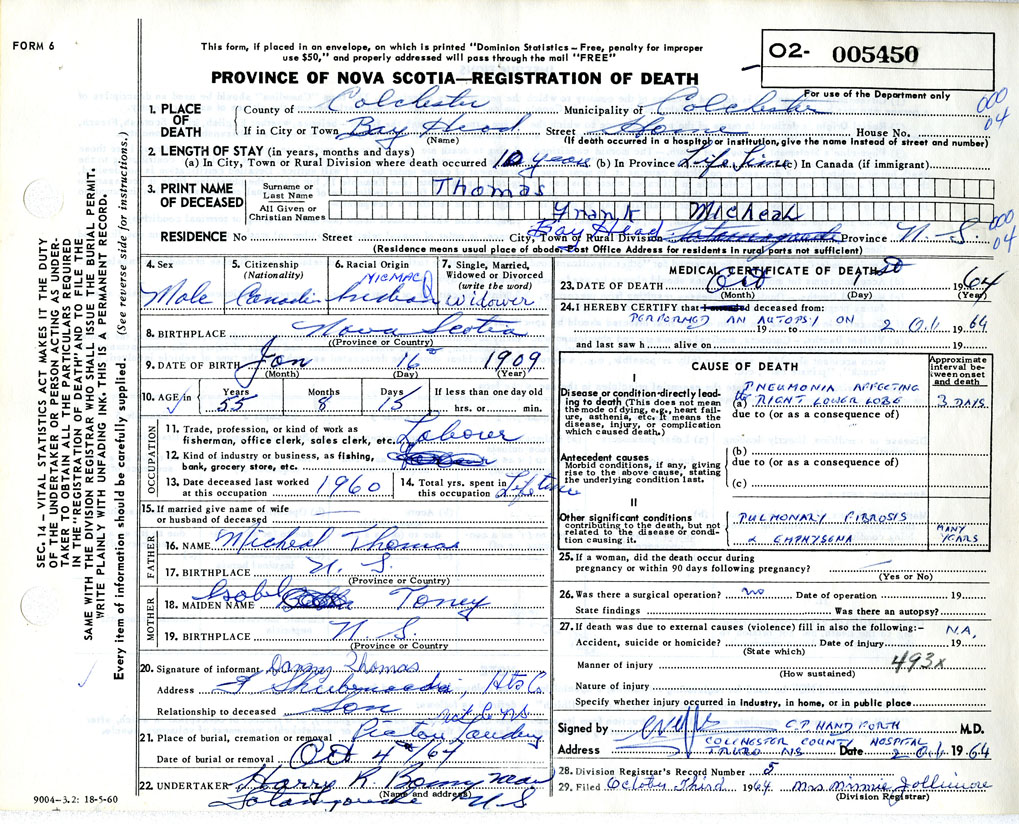 FORM 6
This form, if placed in an envelope, on which is printed "Dominion Statistics – Free, penalty for improper
use $50," and properly addressed will pass through the mail "FREE"
PROVINCE OF NOVA SCOTIA—REGISTRATION OF DEATH
O2- 005450
For use of the Department only
000
04
1. PLACE OF DEATH County of Colchester Municipality of Colchester
If in City or Town Bay Head Street Home House No.
(Name) (If death occurred in a hospital or institution, give the name instead of street and number)
2. LENGTH OF STAY (in years, months and days)
(a) In City, Town or Rural Division where death occurred 10 years (b) In Province Life Time (c) In Canada (if immigrant)
3. PRINT NAME OF DECEASED Surname or Last Name Thomas
All Given or Christian Names Frank Micheal
000
04
RESIDENCE No Street City, Town or Rural Division Bay Head Province N.S.
(Residence means usual place of abode. Post Office Address for residents in rural parts not sufficient)
4. Sex Male
5. Citizenship (Nationality) Canadian
6. Racial Origin MICMAC Indian
7. Single, Married, Widowed or Divorced (write the word) Widower
8. BIRTHPLACE Nova Scotia
(Province or Country)
9. DATE OF BIRTH Jan 16 1909
(Month) (Day) (Year)
10. AGE in Years 55 Months 8 Days 15 If less than one day old hrs. or min.
OCCUPATION
11. Trade, profession, or kind of work as fisherman, office clerk, sales clerk, etc. Labourer
12. Kind of industry or business, as fishing, bank, grocery store, etc.
13. Date deceased last worked at this occupation 1960
14. Total yrs. spent in this occupation Lifetime
15. If married give name of wife or husband of deceased
FATHER
16. NAME Micheal Thomas
17. BIRTHPLACE N. S.
(Province or Country)
MOTHER
18. MAIDEN NAME Isobel Toney
19. BIRTHPLACE N. S.
(Province or Country)
20. Signature of informant Thomas
Address Shubenacadie, Hts Co.
Relationship to deceased Son
21. Place of burial, cremation or removal Pictou Landing
Date of burial or removal Oct 4
22. UNDERTAKER Harry R
(Name and address)
Tatamagouche N S
9004–3.2: 18-5-60
MEDICAL CERTIFICATE OF DEATH
23. DATE OF DEATH Oct 1st 1964
(Month) (Day) (Year)
24. I HEREBY CERTIFY that deceased from:
PERFORMED AN AUTOPSY ON 2 Oct 1964
19 to
and last saw h alive on 19
CAUSE OF DEATH
Approximate interval between onset and death
I
Disease or condition directly leading to death (This does not mean the mode of dying, e.g., heart failure, asthenia, etc. It means the disease, injury, or complication which caused death.)
(a) PNEUMONIA AFFECTING
RIGHT LOWER LOBE 3 DAYS
due to (or as a consequence of)
Antecedent causes
Morbid conditions, if any, giving rise to the above cause, stating the underlying condition last.
(b)
due to (or as a consequence of)
(c)
II
Other significant conditions
contributing to the death, but not related to the disease or condition causing it.
PULMONARY FIBROSIS
& EMPHYSEMA MANY YEARS
25. If a woman, did the death occur during
pregnancy or within 90 days following pregnancy?
(Yes or No)
26. Was there a surgical operation? no Date of operation 19
State findings Was there an autopsy?
27. If death was due to external causes (violence) fill in also the following:– N.A.
Accident, suicide or homicide? Date of injury 19
(State which)
Manner of injury 493x
(How sustained)
Nature of injury
Specify whether injury occurred in industry, in home, or in public place
Signed by C.P. HANDFORTH M.D.
COLCHESTER COUNTY HOSPITAL
Address TRURO NS Date 2 Oct 1964
28. Division Registrar's Record Number 5
29. Filed October Third 1964 Mrs Minnie Jollimore
(Division Registrar)
SEC. 14 – VITAL STATISTICS ACT MAKES IT THE DUTY
OF THE UNDERTAKER OR PERSON ACTING AS UNDER-
TAKER TO OBTAIN ALL THE PARTICULARS REQUIRED
IN THE "REGISTRATION OF DEATH" AND TO FILE THE
SAME WITH THE DIVISION REGISTRAR WHO SHALL ISSUE THE BURIAL PERMIT.
WRITE PLAINLY WITH UNFADING INK. THIS IS A PERMANENT RECORD.
Every item of information should be carefully supplied. (See reverse side for instructions.)